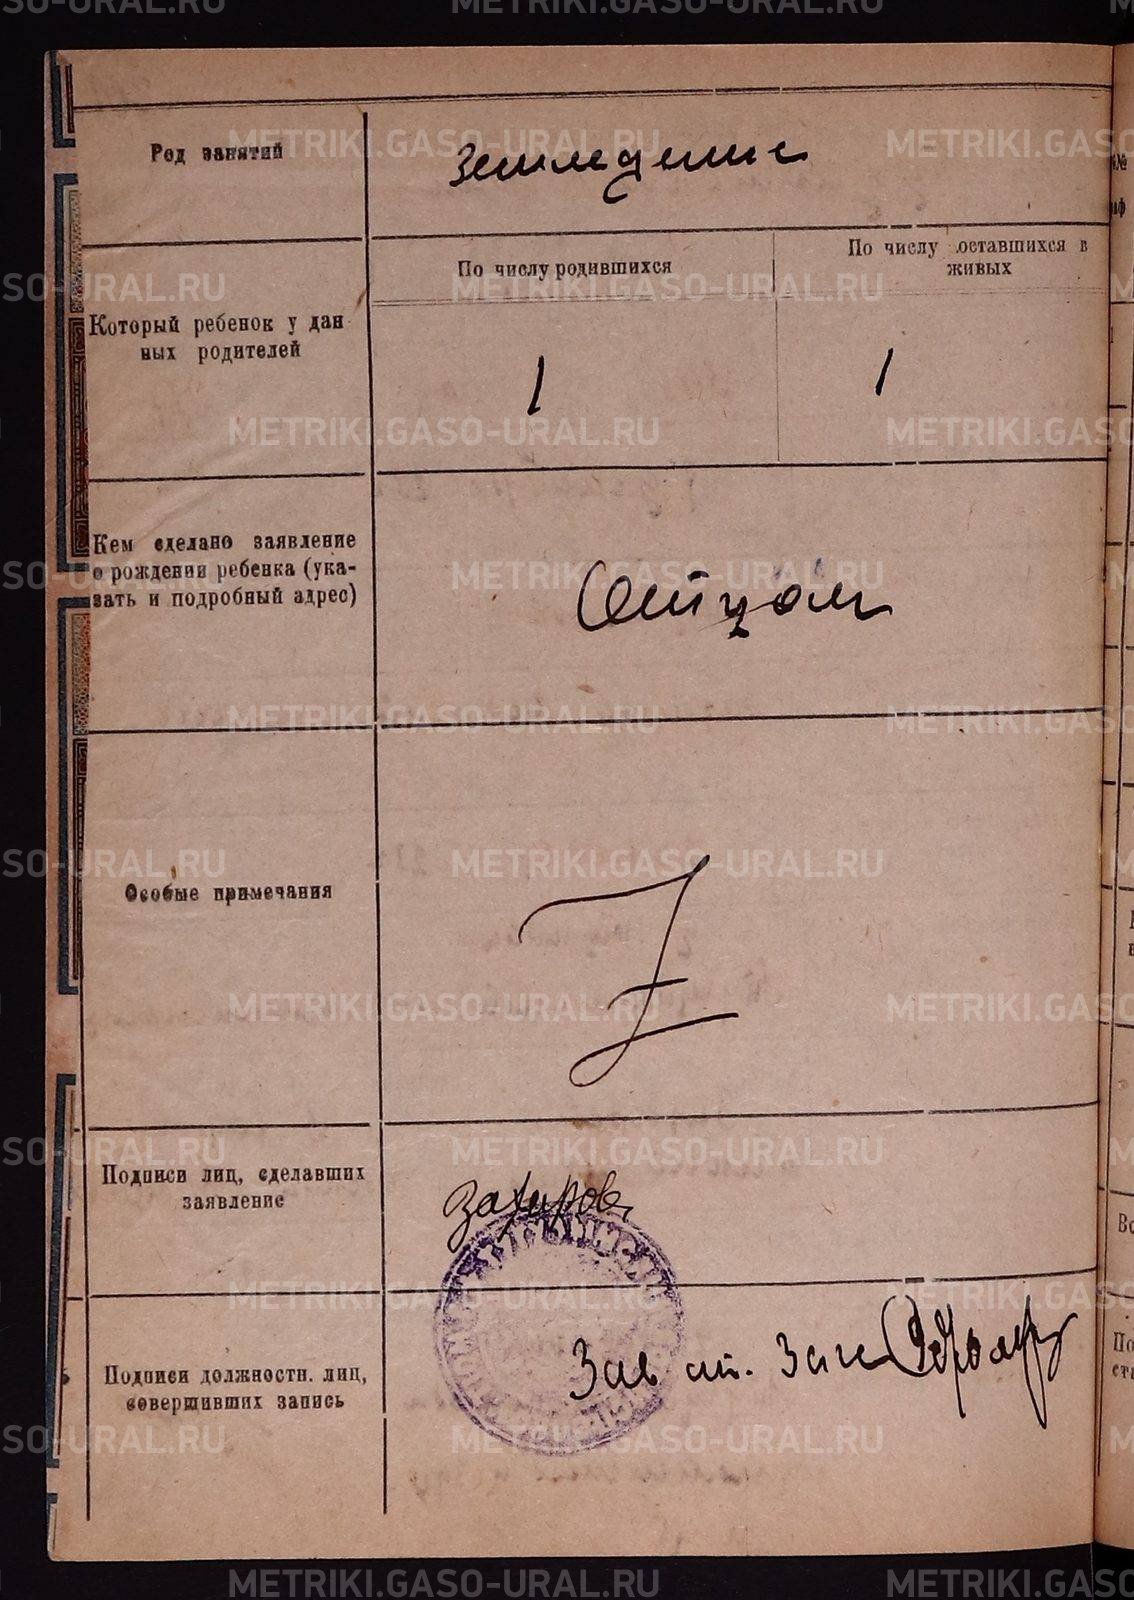 METRIKI.GASO-URAL.RU
Род занятий
Земледелие
Который ребенок у дан
ных родителей
По числу родившихся
По числу оставшихся в
живых
1
1
Кем сделано заявление
о рождении ребенка (ука-
зать и подробный адрес)
Отцом
Особые примечания
Z
Подписи лиц, сделавших
заявление
Подписи должностн. лиц,
совершивших запись
Зав